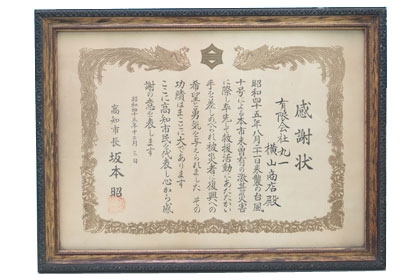 感謝状
有限会社丸一
横山商店殿
昭和四十五年八月二十一日来襲の台風
十号による本市未曽有の激甚災害
に際し率先して救援活動にあたたかい
手を差しのべられ被災者に復興への
希望と勇気を与えられました その
功績はまことに大であります
ここに高知市民を代表し心から感
謝の意を表します
昭和四十五年十二月
高知市長 坂本 昭